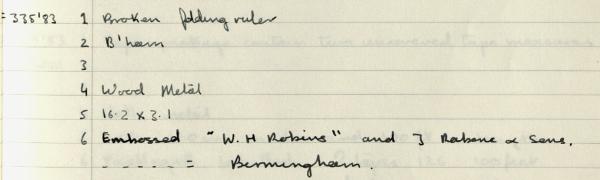 = 335'83 1 Broken folding ruler
2 B'ham
3
4 Wood Metal
5 16.2 x 3.1
6 Embossed "W. H Robins" and J Rabone & Sons.
- - - - - = Birmingham.